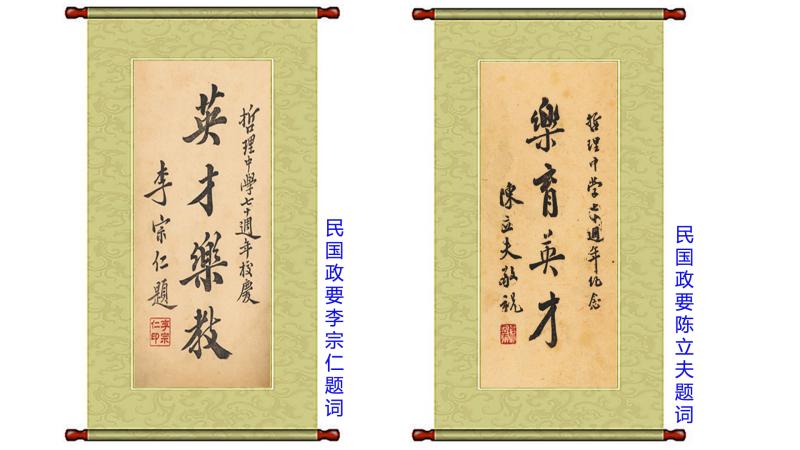 哲理中學七十週年校慶
英才樂教
李宗仁題
李宗仁印
民国政要李宗仁题词
哲理中学七十週年纪念
樂育英才
陳立夫敬祝
民国政要陈立夫题词